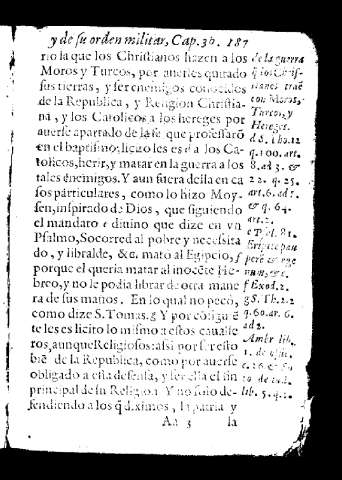 y de su orden militar, Cap. 30. 187
rio la que los Christianos hazen a los
Moros y Turcos, por auerles quitado
sus tierras, y ser enemigos conocidos
de la Republica, y Religion Christia-
na, y los Catolicos a los hereges por
auerse apartado de la fe que professarõ
en el baptismo: licito les es a los Ca-
tolicos, herir, y matar en la guerra a los
tales enemigos. Y aun fuera della en ca
sos particulares, como lo hizo Moy-
sen, inspirado de Dios, que siguiendo
el mandato e diuino que dize en vn
Psalmo, Socorred al pobre y necessita
do, y libralde, &c. mato al Egipcio, f
porque el queria matar al inocẽte He-
breo, y no le podia librar de otra mane
ra de sus manos. En lo qual no pecò,
como dize S. Tomas. g Y por
te les es licito lo mismo a estos caualle
ros, aunque Religiosos: assi por
biẽ de la Republica, como por auerse
obligado a esta defensa, y ser ella el fin
principal de su Religion. Y no solo de-
fendiendo a los q̃ diximos, la patria y
Aa 3 la
de la guerra
q̃ los Chris-
tianos traẽ
con Moros,
Turcos, y
Hereges.
d S. Tho. 12
q. 100. art.
8. ad 3. &
22. q. 25.
art. 6. ad
& q. 64.
art. 2.
e Psal. 81.
Eripite pau
perẽ & ege
num, &c.
f Exod. 2.
g S. Th. 2.2
q. 60. ar. 6.
ad 2.
Ambr lib.
1. de offic.
lib. 5. q.